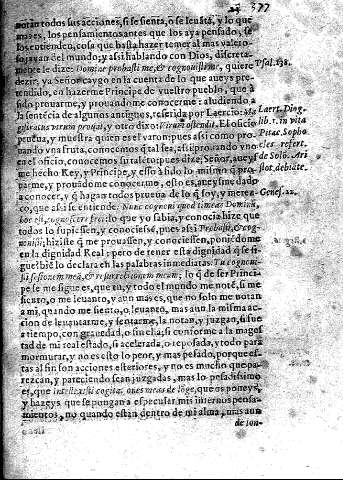 377
notan todos sus acciones, si se sienta, o se leuãta, y lo que
mas es, los pensamientos antes que los aya pensado, se
los entiendẽ, cosa que basta hazer temer al mas valero-
so, rayan del mundo; y assi hablando con Dios, discreta-
mente le dize: Domine probasti me, & cognouisti me, quiere
Psal. 138.
dezir, ya Señor caygo en la cuenta de lo que aueys pre-
tendido, en hazerme Principe de vuestro pueblo, que à
sido prouarme, y prouandome conocerme: aludiendo a
la sentẽcia de algunos antiguos, referida por Laercio:
Laert. Diog.
gistratus virum prouat, y otro dize: Virum ostendit. El oficio
lib. 1. in vita
prueua, y muestra quien es el varon: pues assi como pro
Pitac. Sopho
uando vna fruta, conocemos q̃ tal es, assi prouando vno
cles refert.
en el oficio, conocemos su talẽto: pues dize; Señor, aueys
de Solo. Ari
me hecho Rey, y Principe, y esso à sido lo mismo q̃ pro
stot. debiate.
uarme, y prouãdome conocerme, esto es, aueys me dado
a conocer, y q̃ hagan todos prueua de lo q̃ soy, y merez
Genes. 22.
co, que assi se entiende. Nunc cognoui quod timeas Dominũ,
hoc est, cognoscere feci: lo que yo sabia, y conocia hize que
todos lo supiessen, y conociessẽ, pues assi Probasti, & cog-
nouisti; hizistẽ q̃ me prouassen, y conociessen, poniẽdome
en la dignidad Real; pero de tener esta dignidad q̃ se si-
gue? biẽ lo declara en las palabras inmediatas: Tu cogno-
uisti sessionem meã, & resurrectionem meam; lo q̃ de ser Princi-
pe se me sigue es, que tu, y todo el mundo me notẽ, si me
siento, o me leuanto, y aun mas es, que no solo me notan
a mi, quando me siento, o leuanto, mas aun la misma ac-
cion de leuantarme, y sentarme, la notan, y juzgan, si fue
a tiempo, con grauedad, o sin ella; si conforme a la mages
tad de mi real estado, si acelerada, o reposada, y todo para
mormurar, y no es esto lo peor, y mas pesado, porque es-
tas al fin son acciones esteriores, y no es mucho que pa-
rezcan, y pareciendo sean juzgadas, mas lo pesadissimo
es, que intellexisti cogitationes meas de lõge, que os poneys,
y hazeys que se pongan a especular mis internos pensa-
mientos, no quando estàn dentro de mi alma, mas aun
de lon-